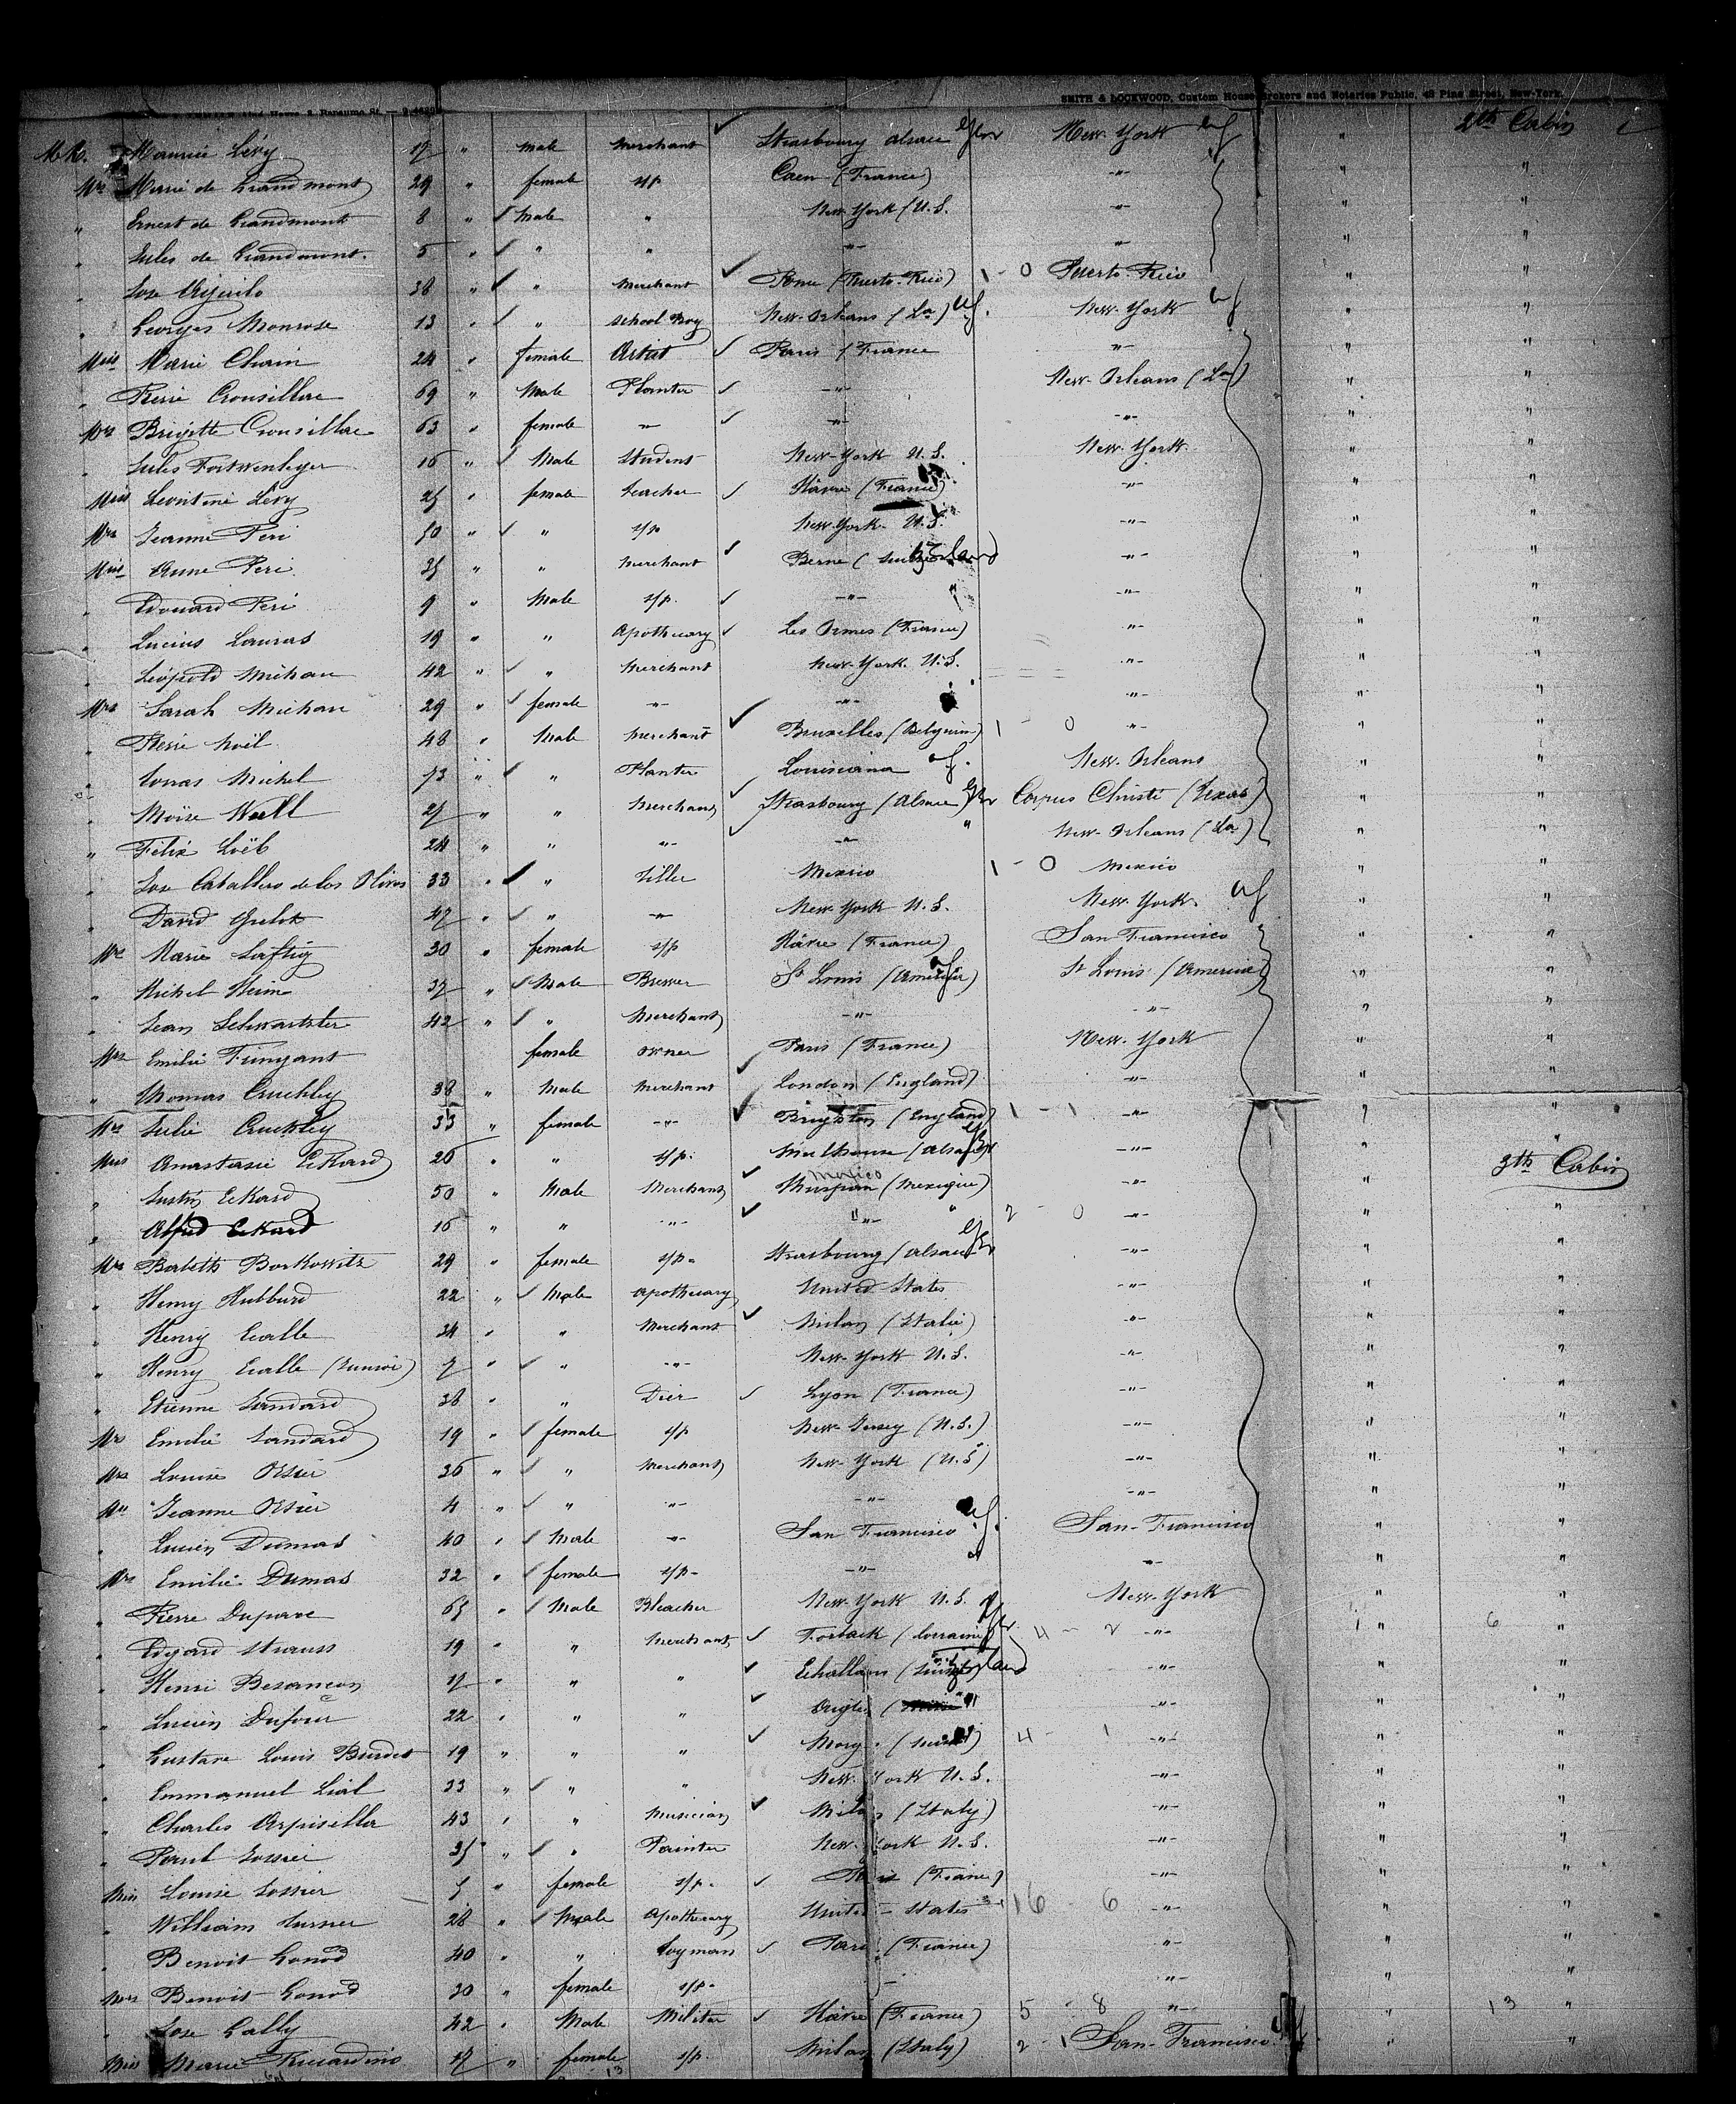 SMITH & LOCKWOOD, Custom House Brokers and Notaries Public, 48 Pine Street, New-York.
2th Cabin
Mr. Maurice Lévy 17 " male Merchant Strasbourg Alsace New-York "
Mrs Marie de Grandmont 29 " female s/p Caen (France) -"- " "
" Ernest de Grandmont 8 " Male " New York (U.S. -"- " "
" Jules de Grandmont. 5 " " " -"- -"- " "
" Jose 38 " " Merchant Ponce (Puerto-Rico) 1 - 0 Puerto-Rico " "
" Georges Monrose 13 " " School Boy New-Orleans (La) New-York " "
Miss Marie Chain 24 " female Artist Paris (France -"- " "
" Pierre Crousillere 69 " Male Planter -"- New-Orleans (La) " "
Mrs Brigitte Crousillere 63 " female -"- -"- -"- " "
" Jules 16 " Male Student New-York U.S. New-York. " "
Miss Leontine Levy 25 " female teacher Hâvre (France) -"- " "
Mrs Jeanne Peri 50 " " s/p New York- U.S. -"- " "
Miss Anne Peri 35 " " Merchant Berne ( -"- " "
" Edouard Peri 9 " Male s/p. -"- -"- " "
" Lucius Lauras 19 " " Apothecary Les Ormes (France) -"- " "
" Léopold Michau 42 " " Merchant New-York. U.S. -"- " "
Mrs Sarah Michau 29 " female -"- -"- -"- " "
" Pierre Noël 48 " Male Merchant Bruxelles (Belgium) 1 - 0 -"- " "
" Michel 73 " " Planter Louisiana New-Orleans " "
" Moïse Weill 27 " " Merchant Strasbourg (Alsace) Corpus Christi (Texas) " "
" Félix Loëb 24 " " -"- -"- New-Orleans (La) " "
" Jose Caballero de los Olivos 33 " " Mexico 1 - 0 Mexico " "
" David 47 " " -"- New-York U.S. New-York. " "
Mrs Marie 30 " female s/p Hâvre (France) San Francisco " "
" Michel Heim 37 " Male Brewer St Louis ( St Louis (America) " "
" Jean 42 " " Merchant -"- -"- " "
Mrs Emilie female owner Paris (France) New-York " "
" Thomas Cruchley 38 " Male Merchant London (England) -"- " "
Mrs Julie Cruchley 33 " female -"- Brighton (England) 1 - 1 -"- " "
Miss Anastasie Eckard 26 " " s/p. Mulhouse (Alsace) -"- "
3th Cabin
" Justin Eckard 50 " Male Merchant Mexico (Mexique) -"- "
" Alfred Eckard 16 " " -"- " 2 0 -"- " "
Mrs Borkowitz 29 " female s/p- Strasbourg (Alsace) -"- " "
" Henry Hubburd 22 " Male Apothecary United States -"- " "
" Henry Ecalle 34 " " Merchant Milan (Italie) -"- " "
" Henry Ecalle (Junior) 7 " " -"- New-York U.S. -"- " "
" Etienne Sandard 38 " " Dier Lyon (France) -"- " "
Mrs Emilie Sandard 19 " female s/p New-Jersey (U.S.) -"- " "
Mrs Louise Osier 36 " " Merchant New-York (U.S) -"- " "
Jeanne Osier 4 " " -"- -"- -"- " "
" Lucien Dumas 40 " Male -"- San Francisco San-Francisco " "
Mrs Emilie Dumas 32 " female s/p- -"- -"- " "
" Pierre 65 " Male Bleacher New-York U.S. New-York " "
" Edgard Strauss 19 " " Merchant Forback (Lorraine) 4 - 2 -"- 1 " 6 "
" Henri Besançon 17 " " " Echallens ( -"- " "
" Lucien Dufour 22 " " " -"- " "
" Gustave Louis Burdet 19 " " " 4 - 1 -"- " "
" Emmanuel 33 " " " New-York U.S. -"- " "
" Charles 43 " " Musician Milan (Italy) -"- " "
" Paul 35 " " Painter New-York U.S. -"- " "
Miss Louise 5 " female s/p. Paris (France) -"- " "
" William 28 " Male Apothecary United-States 16 - 6 -"- " "
" Benoit Gonod 40 " " Paris (France) -"- " "
Mrs Benoit Gonod 30 " female s/p- -"- " "
" Jose Gally 42 " Male Hâvre (France) 5 - 8 -"- " 13 "
Miss Marie 17 " female s/p. Milan (Italy) 2 - 1 San-Francisco " "
13